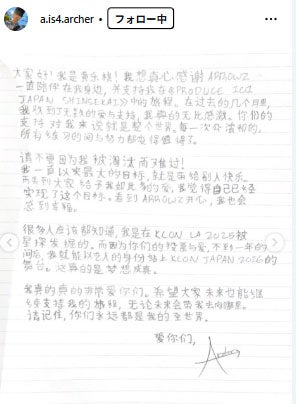 a.is4.archer • フォロー中
大家好！我是黄乐桢！我想真心感谢 ARROWZ
一直陪伴在我身边，并支持我在《PRODUCE 101
JAPAN SHINSEKAI》中的旅程。在过去的几个月里，
我收到了无数的爱与支持，我真的无比感激。你们的
支持对我来说就是整个世界。每一次外演和，
所有练习的间与努力都变得值得了。
请不要因为我被淘汰而难过！
我一直以来最大的目标，就是带给别人快乐。
而看到大家给予我如此多的爱，我觉得自己已经
实现了这个目标。看到 ARROWZ 开心，我也会
感到幸福。
很多人应该都知道，我是在 KCON LA 2025被
星探发掘的。而因为你们的投票与爱，不到一年的
间后，我就能以艺人的身份站上KCON JAPAN 2026的
舞台。这真的是梦想成真。
我真的真的非常爱你们。希望大家未来也能继
续支持我的旅程，无论未来会带我去向哪里。
请记住，你们永远都是我的全世界。
爱你们，